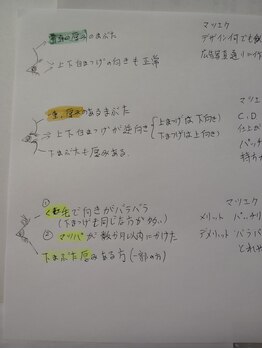 普通の厚みのまぶた
マツエク
デザイン何でも
→上下自まつげの向きも正常
広告写真通り
厚みのあるまぶた
マツエク
C,D
→上下自まつげが逆向き
上まつげは下向き
下まつげは上向き
仕上が
パッチ
下まぶたも厚みある。
持ち
①
くせ毛で向きがバラバラ
(下まつげも同じな方が多い)
マツエク
メリット パッチリ
② マツパが数か月以内にかけた
デメリット バラバラ
下まぶた厚みある方(一部の方)
とれや